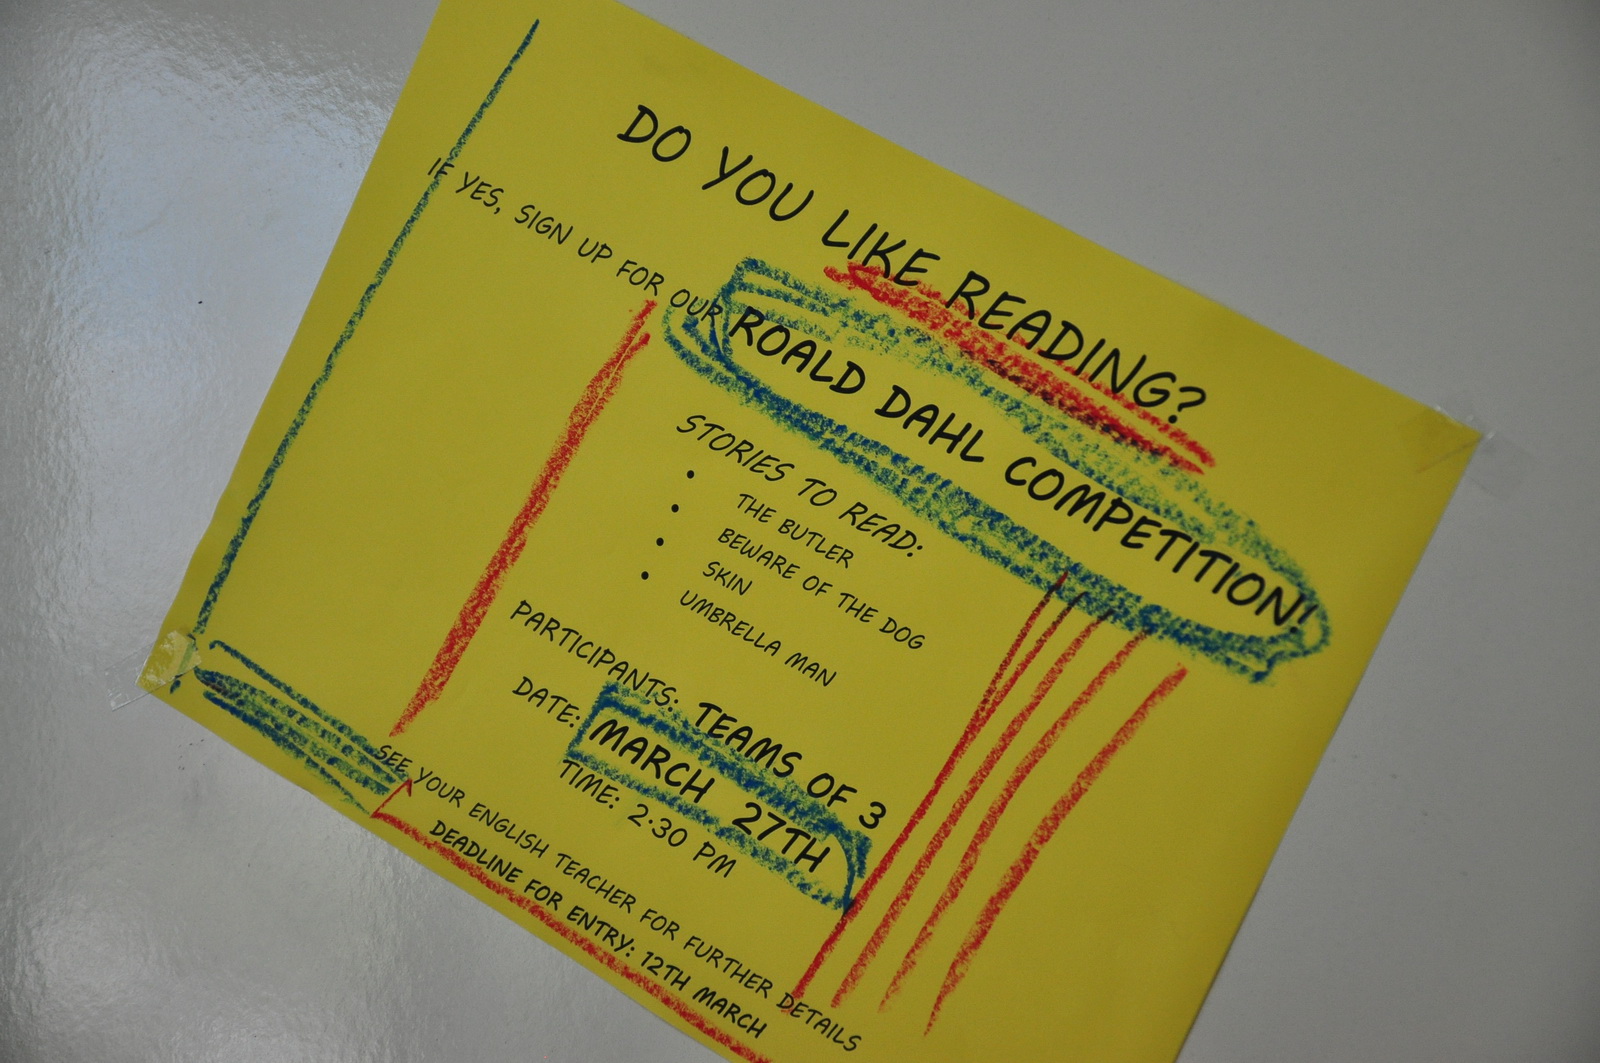 DO YOU LIKE READING?
IF YES, SIGN UP FOR OUR ROALD DAHL COMPETITION!
STORIES TO READ:
• THE BUTLER
• BEWARE OF THE DOG
• SKIN
• UMBRELLA MAN
PARTICIPANTS: TEAMS OF 3
DATE: MARCH 27TH
TIME: 2:30 PM
SEE YOUR ENGLISH TEACHER FOR FURTHER DETAILS
DEADLINE FOR ENTRY: 12TH MARCH